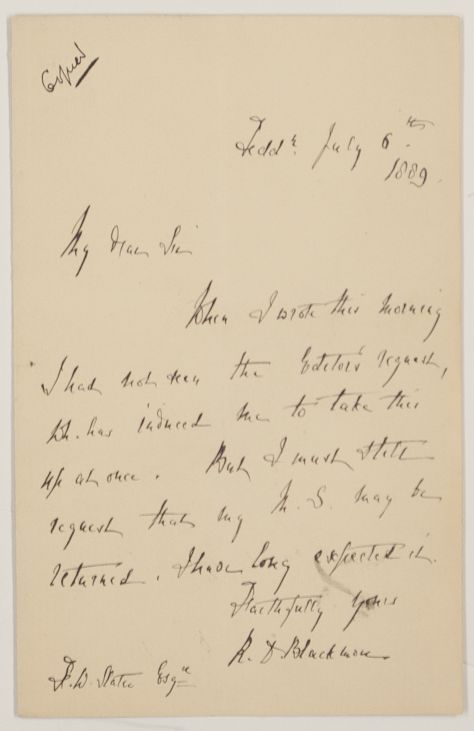 Copied
Tedd^n July 6^th
1889.
My dear Sir
When I wrote this morning
I had not seen the Editor's request,
wh. has induced me to take this
up at once. But I must still
request that my M. S. may be
returned. I have long expected it.
Faithfully yours
R. D. Blackmore.
F. W. Slater Esq^re